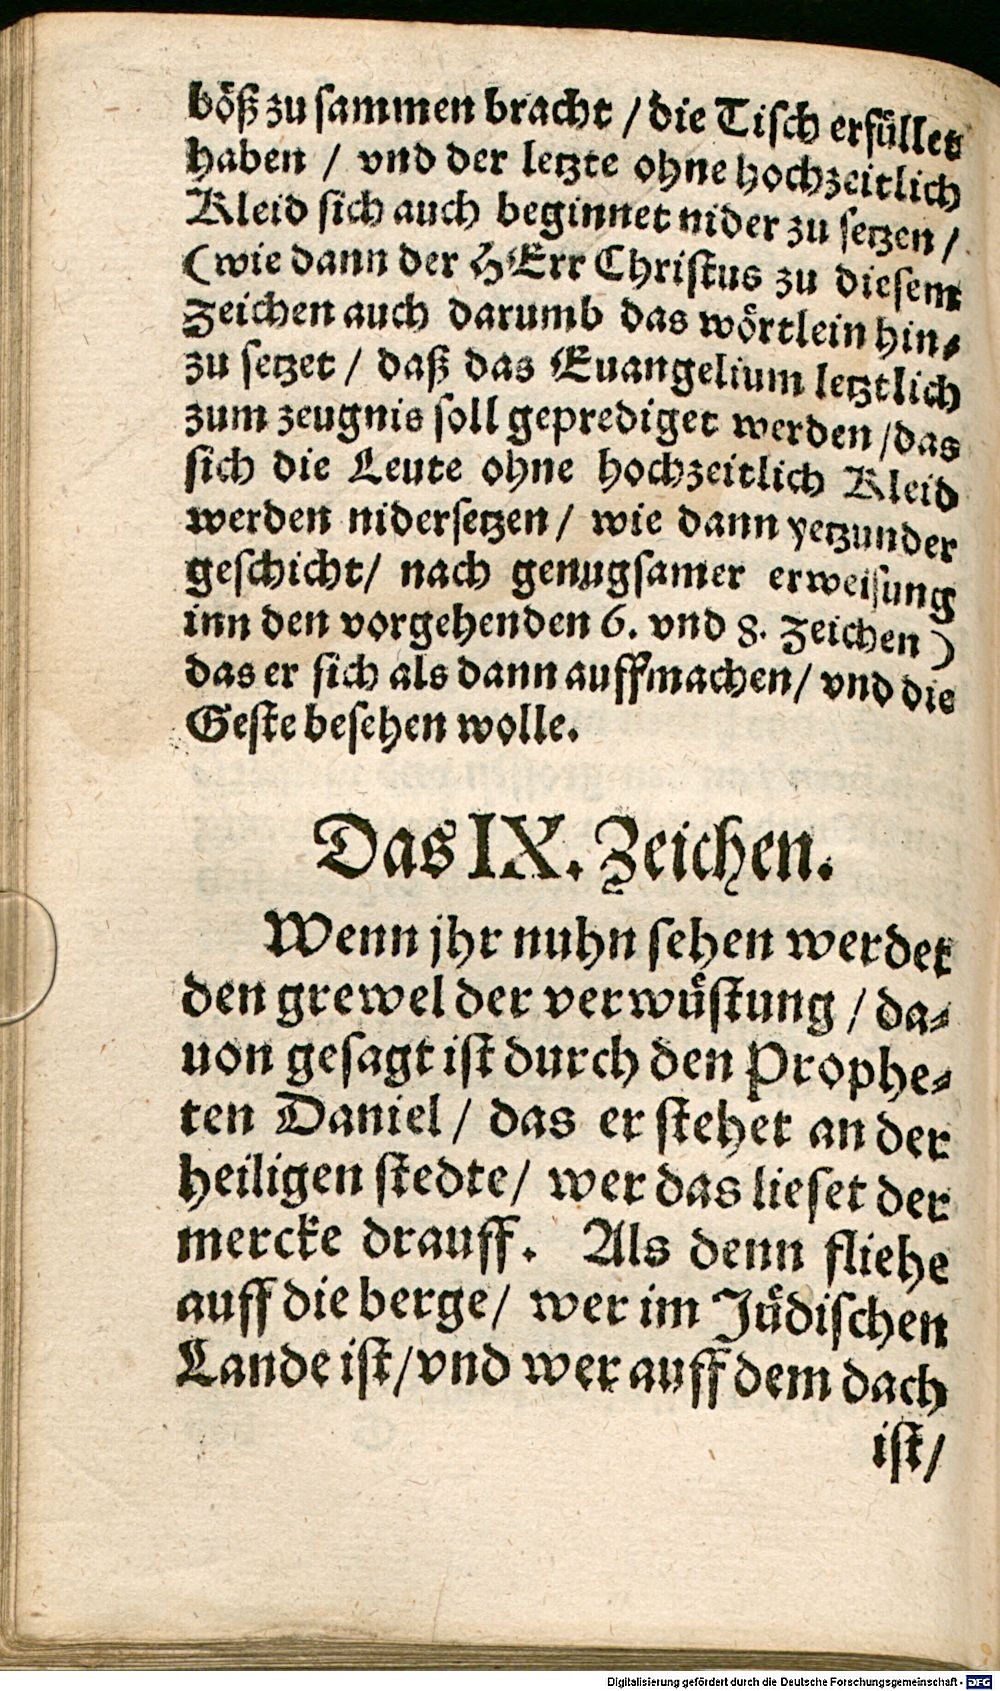 böß zu sammen bracht / die Tisch erfüllet
haben / vnd der letzte ohne hochzeitlich
Kleid sich auch beginnet nider zu setzen /
(wie dann der HErr Christus zu diesem
Zeichen auch darumb das wörtlein hin⸗
zu setzet / daß das Euangelium letztlich
zum zeugnis soll geprediget werden / das
sich die Leute ohne hochzeitlich Kleid
werden nidersetzen / wie dann yetzunder
geschicht / nach genugsamer erweisung
inn den vorgehenden 6. vnd 8. Zeichen )
das er sich als dann auffmachen / vnd die
Geste besehen wolle.
Das IX. Zeichen.
Wenn jhr nuhn sehen werdet
den grewel der verwüstung / da⸗
uon gesagt ist durch den Prophe⸗
ten Daniel / das er stehet an der
heiligen stedte / wer das lieset der
mercke drauff. Als denn fliehe
auff die berge / wer im Jüdischen
Lande ist / vnd wer auff dem dach
ist /
Digitalisierung gefördert durch die Deutsche Forschungsgemeinschaft - DFG